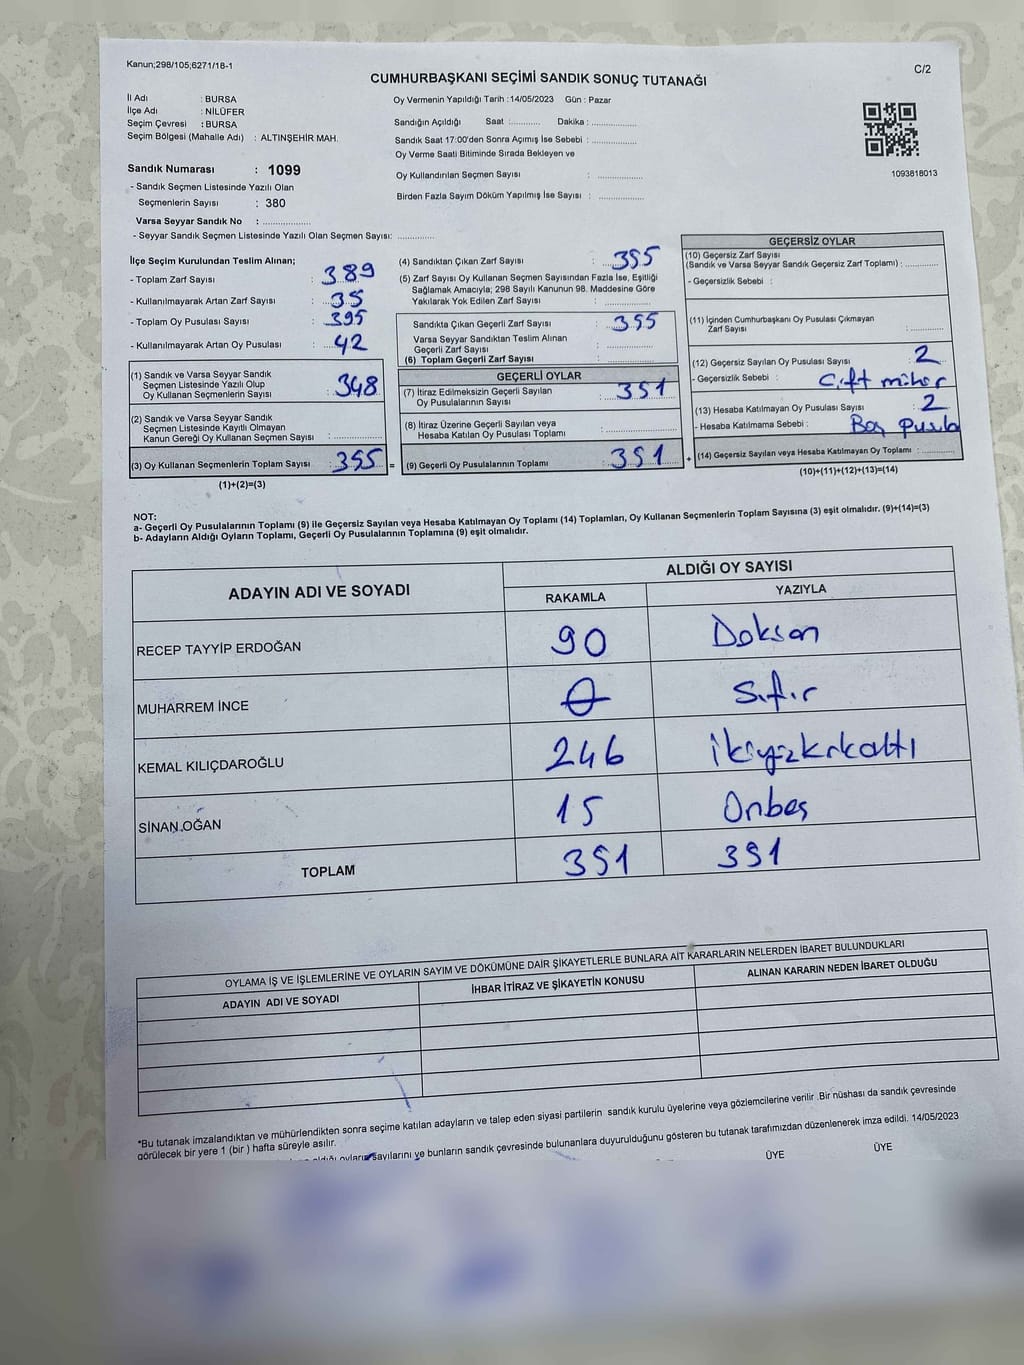 Kanun;298/105;6271/18-1
C/2
CUMHURBAŞKANI SEÇİMİ SANDIK SONUÇ TUTANAĞI
İl Adı : BURSA
İlçe Adı : NİLÜFER
Seçim Çevresi : BURSA
Seçim Bölgesi (Mahalle Adı) : ALTINŞEHİR MAH.
Oy Vermenin Yapıldığı Tarih :14/05/2023 Gün : Pazar
Sandığın Açıldığı Saat :........... Dakika :..................
Sandık Saat 17:00'den Sonra Açımış İse Sebebi :..................
Oy Verme Saati Bitiminde Sırada Bekleyen ve
Oy Kullandırılan Seçmen Sayısı : ..................
Birden Fazla Sayım Döküm Yapılmış İse Sayısı : ..................
1093818013
Sandık Numarası : 1099
- Sandık Seçmen Listesinde Yazılı Olan
Seçmenlerin Sayısı : 380
Varsa Seyyar Sandık No : ................
- Seyyar Sandık Seçmen Listesinde Yazılı Olan Seçmen Sayısı: .............
İlçe Seçim Kurulundan Teslim Alınan;
- Toplam Zarf Sayısı : 389
- Kullanılmayarak Artan Zarf Sayısı : 35
- Toplam Oy Pusulası Sayısı : 395
- Kullanılmayarak Artan Oy Pusulası : 42
(1) Sandık ve Varsa Seyyar Sandık
Seçmen Listesinde Yazılı Olup
Oy Kullanan Seçmenlerin Sayısı : 348
(2) Sandık ve Varsa Seyyar Sandık
Seçmen Listesinde Kayıtlı Olmayan
Kanun Gereği Oy Kullanan Seçmen Sayısı : ................
(3) Oy Kullanan Seçmenlerin Toplam Sayısı : 355 =
(1)+(2)=(3)
(4) Sandıktan Çıkan Zarf Sayısı : 355
(5) Zarf Sayısı Oy Kullanan Seçmen Sayısından Fazla İse, Eşitliği
Sağlamak Amacıyla; 298 Sayılı Kanunun 98. Maddesine Göre
Yakılarak Yok Edilen Zarf Sayısı : ................
Sandıkta Çıkan Geçerli Zarf Sayısı : 355
Varsa Seyyar Sandıktan Teslim Alınan
Geçerli Zarf Sayısı : ................
(6) Toplam Geçerli Zarf Sayısı : ................
GEÇERLİ OYLAR
(7) İtiraz Edilmeksizin Geçerli Sayılan
Oy Pusulalarının Sayısı : 351
(8) İtiraz Üzerine Geçerli Sayılan veya
Hesaba Katılan Oy Pusulası Toplamı : ................
(9) Geçerli Oy Pusulalarının Toplamı : 351 +
GEÇERSİZ OYLAR
(10) Geçersiz Zarf Sayısı
(Sandık ve Varsa Seyyar Sandık Geçersiz Zarf Toplamı) : ............
- Geçersizlik Sebebi :
(11) İçinden Cumhurbaşkanı Oy Pusulası Çıkmayan
Zarf Sayısı : ............
(12) Geçersiz Sayılan Oy Pusulası Sayısı : 2
- Geçersizlik Sebebi : Çift mühür
(13) Hesaba Katılmayan Oy Pusulası Sayısı : 2
- Hesaba Katılmama Sebebi : Boş pusula
(14) Geçersiz Sayılan veya Hesaba Katılmayan Oy Toplamı : ............
(10)+(11)+(12)+(13)=(14)
NOT:
a- Geçerli Oy Pusulalarının Toplamı (9) ile Geçersiz Sayılan veya Hesaba Katılmayan Oy Toplamı (14) Toplamları, Oy Kullanan Seçmenlerin Toplam Sayısına (3) eşit olmalıdır. (9)+(14)=(3)
b- Adayların Aldığı Oyların Toplamı, Geçerli Oy Pusulalarının Toplamına (9) eşit olmalıdır.
ADAYIN ADI VE SOYADI ALDIĞI OY SAYISI
RAKAMLA YAZIYLA
RECEP TAYYİP ERDOĞAN 90 Doksan
MUHARREM İNCE 0 Sıfır
KEMAL KILIÇDAROĞLU 246 ikiyüzkırkaltı
SİNAN OĞAN 15 Onbeş
TOPLAM 351 351
OYLAMA İŞ VE İŞLEMLERİNE VE OYLARIN SAYIM VE DÖKÜMÜNE DAİR ŞİKAYETLERLE BUNLARA AİT KARARLARIN NELERDEN İBARET BULUNDUKLARI
ADAYIN ADI VE SOYADI İHBAR İTİRAZ VE ŞİKAYETİN KONUSU ALINAN KARARIN NEDEN İBARET OLDUĞU
*Bu tutanak imzalandıktan ve mühürlendikten sonra seçime katılan adayların ve talep eden siyasi partilerin sandık kurulu üyelerine veya gözlemcilerine verilir .Bir nüshası da sandık çevresinde
görülecek bir yere 1 (bir ) hafta süreyle asılır.
aldığı oyların sayılarını ve bunların sandık çevresinde bulunanlara duyurulduğunu gösteren bu tutanak tarafımızdan düzenlenerek imza edildi. 14/05/2023
ÜYE ÜYE